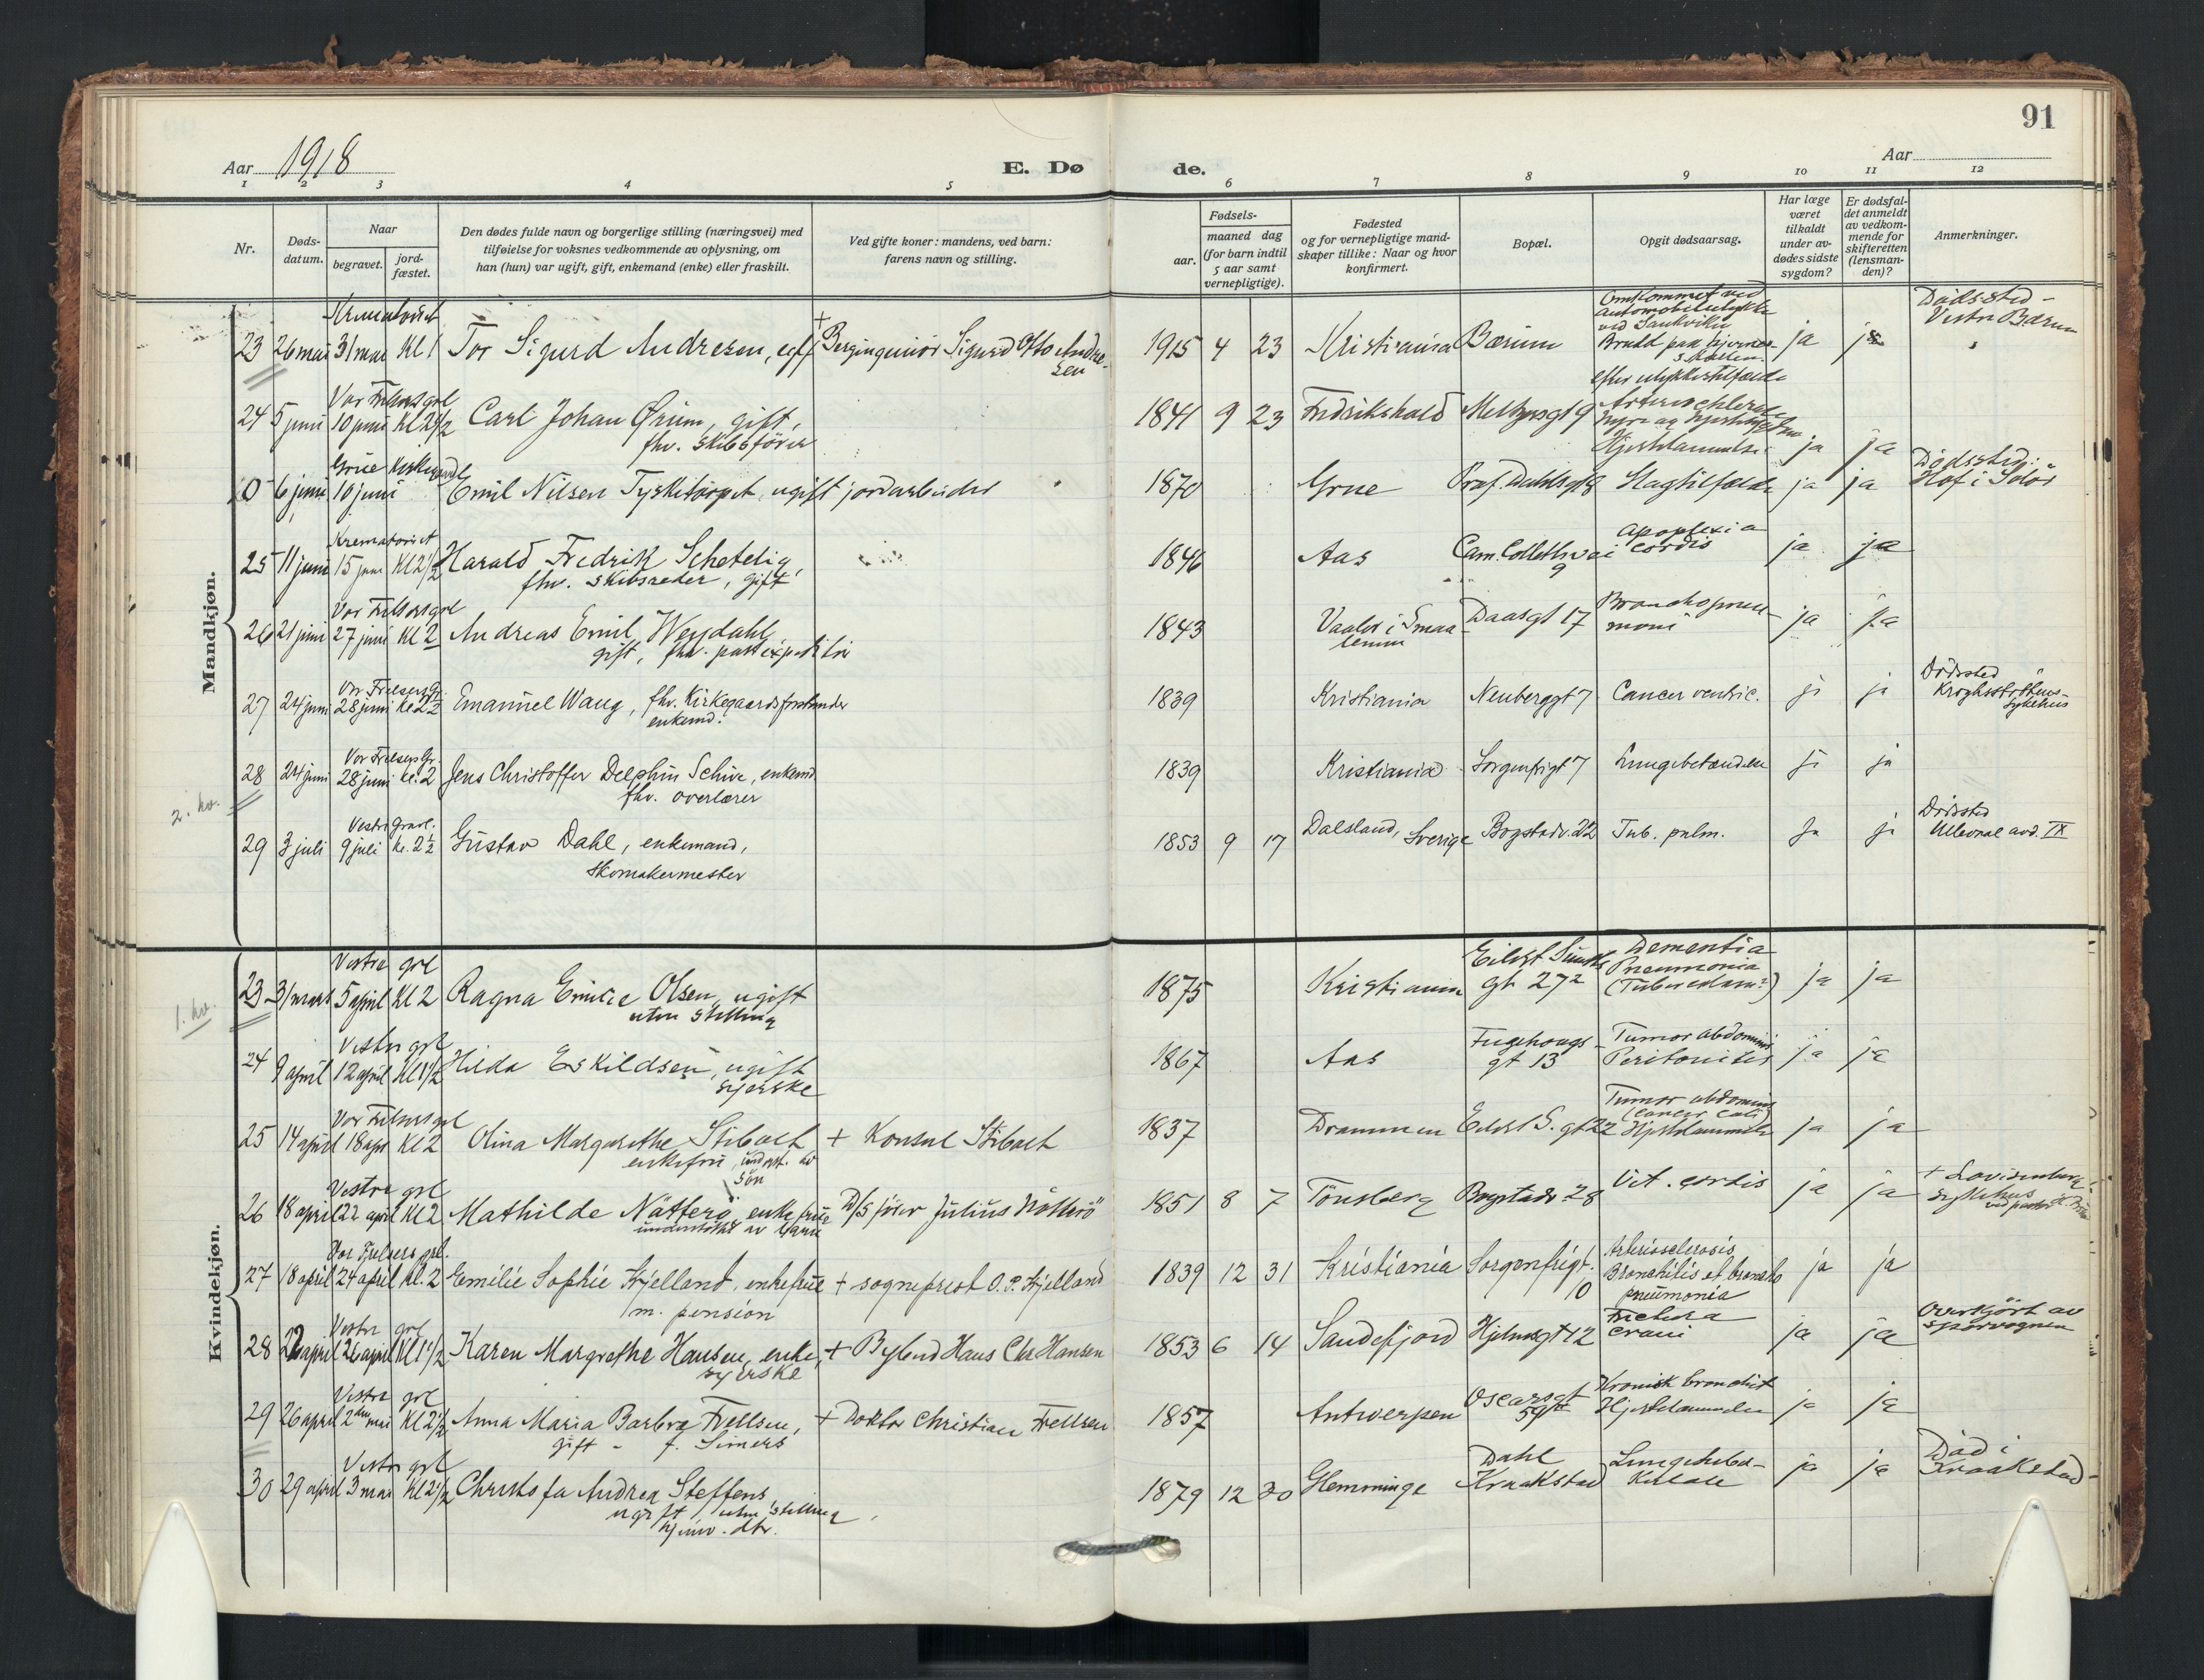 91
Aar 1918
E. Dø
de.
Aar
1 2 3 4 5 6 7 8 9 10 11 12
Nr.
Døds-
datum.
Naar
begravet.
jord-
fæstet.
Den dødes fulde navn og borgerlige stilling (næringsvei) med
tilføielse for voksnes vedkommende av oplysning, om
han (hun) var ugift, gift, enkemand (enke) eller fraskilt.
Ved gifte koner: mandens, ved barn:
farens navn og stilling.
Fødsels-
aar.
maaned dag
(for barn indtil
5 aar samt
vernepligtige).
Fødested
og for vernepligtige mand-
skaper tillike: Naar og hvor
konfirmert.
Bopæl.
Opgit dødsaarsag.
Har læge
været
tilkaldt
under av-
dødes sidste
sygdom?
Er dødsfal-
det anmeldt
av vedkom-
mende for
skifteretten
(lensman-
den)?
Anmerkninger.
Mandkjøn.
Krematoriet
23 26 mai 31 mai Kl 1 Tor Sigurd Andresen, + Bergingeniör Sigurd Otto Andre-
sen
1915 4 23 Kristiania Bærum
Omkommet ved
automobilulykke
ved Sandvika
Brudd paa hjerne-
skallen
ja ja
Dödssted -
Vestre Bærum
efter ulykkestilfælde
Vor Frelsers grl
24 5 juni 10 juni Kl 2 1/2 Carl Johan Ørum, gift,
fhv. skibsförer
1841 9 23 Fredrikshald Meltzersgt 9
Hjertelammelse ja ja
Grue Kirkegaard
0 6 juni 10 juni Emil Nilsen Tysketorpet, ugift jordarbeider
1870 Grue Prof. Dahlsgt 8 Slagtilfælde ja ja
Dödssted:
Hof i Solör
Krematoriet
25 11 juni 15 juni Kl 2 1/2 Harald Fredrik Schetelig,
fhv. skibsreder, gift
1846 Aas Cam. Colletts vei
9
Apoplexia
cordis
ja ja
Vor Frelsers grl
26 21 juni 27 juni Kl 2 Andreas Emil Weydahl,
gift, fhv. postexpeditör
1843 Vaaler i Smaa-
lenene
Daasgt 17 Bronchopneu-
moni
ja ja
Vor Frelsers Gr.
27 24 juni 28 juni kl 2 1/2 Emanuel Waug, fhv. Kirkegaardsforstander
enkemd.
1839 Kristiania Neuberggt 7 Cancer ventric. ja ja
Dödssted
Kroghstöttens
Sykehus
Vor Frelsers Gr.
28 24 juni 28 juni kl. 2 Jens Christoffer Delphin Schive, enkemd.
fhv. overlærer
1839 Kristiania Sorgenfrigt 7 Lungebetændelse ja ja
2. kv.
Vestre Gravl.
29 3 juli 9 juli kl. 2 1/2 Gustav Dahl, enkemand,
skomakermester
1853 9 17 Dalsland, Sverige Bogstadv. 22 Tub. pulm. ja ja
Dödssted
Ullevaal avd. IX
Kvindekjøn.
1. kv.
Vestre grl
23 31 mars 5 april Kl 2 Ragna Emilie Olsen, ugift
uten stilling
1875 Kristiania Eilert Sundts
gt 27 2
Dementia
Pneumonia
ja ja
Vestre grl
24 9 april 12 april Kl 1 1/2 Hilda Eskildsen, ugift
syerske
1867 Aas Fuglehaugs-
gt 13
Tumor abdominis
Peritonitis
ja ja
Vor Frelsers grl
25 14 april 18 apr Kl 2 Olina Margarethe Stibolt + Konsul Stibolt
enkefru, underst. av
sön
1837 Drammen Eilert S. gt 22
Tumor abdominis
(Cancer coli)
Hjertelammelse
ja ja
Vestre grl
26 18 april 22 april Kl 2 Mathilde Nötterö, enkefrue D/S förer Julius Nötterö
understöttet av barn
1851 8 7 Tönsberg Bogstadv 28 Vit. cordis ja ja
+ Lovisenberg
sykehus
Vor Frelsers grl.
27 18 april 24 april Kl. 2 Emilie Sophie Kjelland, enkefrue + sogneprest O. P. Kjelland
m. pension
1839 12 31 Kristiania Sorgenfrigt.
10
Arteriosclerosis
Bronchitis et broncho
pneumonia
ja ja
Vestre grl
28 22 april 26 april Kl 1 1/2 Karen Margrethe Hansen, enke, + Bybud Hans Chr Hansen
syerske
1853 6 14 Sandefjord Hjelmsgt 12
Fractura
cranii
ja ja
Overkjört av
sporvognen
Vestre grl
29 26 april 2den mai Kl 2 1/2 Anna Maria Barbra Frellsen, + Doktor Christian Frellsen
gift - f. Simers
1857 Antwerpen Oscarsgt
59
Kronisk bronchit
Hjertelammelse
ja ja
Vestre grl
30 29 april 3 mai Kl 2 1/2 Christofa Andrea Steffens
ugift, uten stilling
hjemv. dtr.
1879 12 20 Glemminge Dahl
Kraakstad
ja ja
Död i
Kraakstad